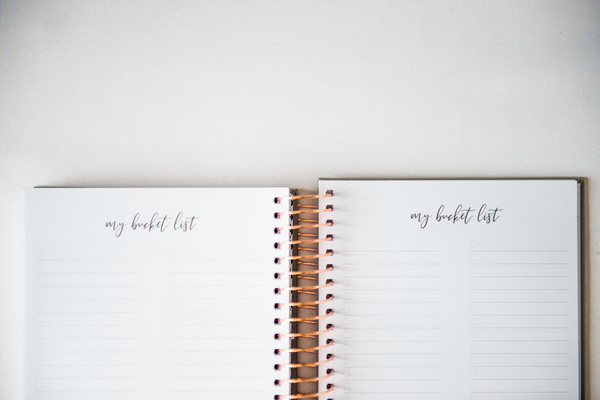 my bucket list
my bucket list